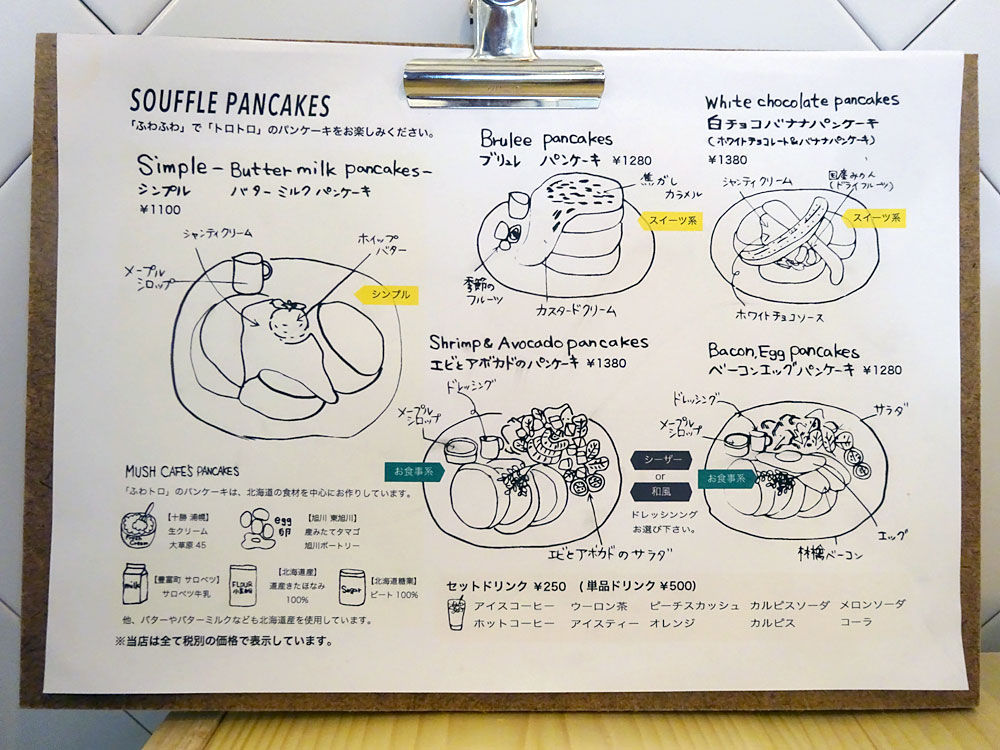 SOUFFLE PANCAKES
「ふわふわ」で「トロトロ」のパンケーキをお楽しみください。
Simple – Butter milk pancakes –
シンプル バターミルクパンケーキ
¥1100
シャンティクリーム
ホイップ
バター
メープル
シロップ
シンプル
Brulee pancakes
ブリュレ パンケーキ ¥1280
焦がし
カラメル
スイーツ系
季節の
フルーツ
カスタードクリーム
White chocolate pancakes
白チョコバナナパンケーキ
(ホワイトチョコレート&バナナパンケーキ)
¥1380
シャンティクリーム
国産みかん
(ドライフルーツ)
スイーツ系
ホワイトチョコソース
Shrimp & Avocado pancakes
エビとアボカドのパンケーキ ¥1380
ドレッシング
メープル
シロップ
お食事系
エビとアボカドのサラダ
シーザー
or
和風
ドレッシンング
お選び下さい。
Bacon, Egg pancakes
ベーコンエッグパンケーキ ¥1280
ドレッシング
サラダ
メープル
シロップ
お食事系
エッグ
林檎ベーコン
MUSH CAFE'S PANCAKES
「ふわトロ」のパンケーキは、北海道の食材を中心にお作りしています。
Fresh Cream
【十勝 浦幌】
生クリーム
大草原 45
egg
卵
【旭川 東旭川】
産みたてタマゴ
旭川ポートリー
milk
【豊富町 サロベツ】
サロベツ牛乳
FLOUR
小麦粉
【北海道産】
道産きたほなみ
100%
Sugar
【北海道糖業】
ビート 100%
他、バターやバターミルクなども北海道産を使用しています。
※当店は全て税別の価格で表示しています。
セットドリンク ¥250 (単品ドリンク ¥500)
アイスコーヒー ウーロン茶 ピーチスカッシュ カルピスソーダ メロンソーダ
ホットコーヒー アイスティー オレンジ カルピス コーラ